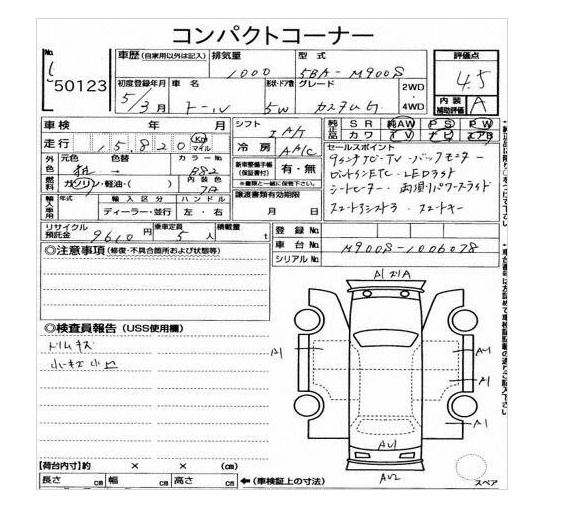 コンパクトコーナー
No. 50123
車歴 (自家用以外は記入) 排気量 1000 型式 5BA-M900S 評価点 4.5
初度登録年月 5/3月 車名 トール 形状・ドア数 5W グレード カスタムG 2WD・4WD 内装補助評価 A
車検 年 月 シフト IA/T 純正品 SR 純AW PS PW
走行 15,820 Km マイル 冷房 AAC カワ TV ナビ エアB
外色 元色 色替 → カラーNo. B82 新車整備手帳(保証書付) 有・無 ※書類と一緒に保管下さい。 セールスポイント
燃料 ガソリン・軽油・( ) 内装色 9インチナビ・TV・バックモニター
輸入車用 年式 輸入区分 ハンドル 譲渡書類有効期限 ロボットンETC・LEDライト
ディーラー・並行 左・右 月 日 シートヒーター・両側パワースライド
リサイクル預託金 9610円 乗車定員 5人 積載量 t
登録No.
車台No. M900S-1006078
シリアルNo.
◎注意事項 (修復・不具合箇所および状態等)
◎検査員報告 (USS使用欄)
トリムキズ
小キズ小凹
A1
A1
A1
A1
A1
AU1
AU2
スペア
【荷台内寸】約 × × (cm)
長さ cm 幅 cm 高さ cm ←(車検証上の寸法)